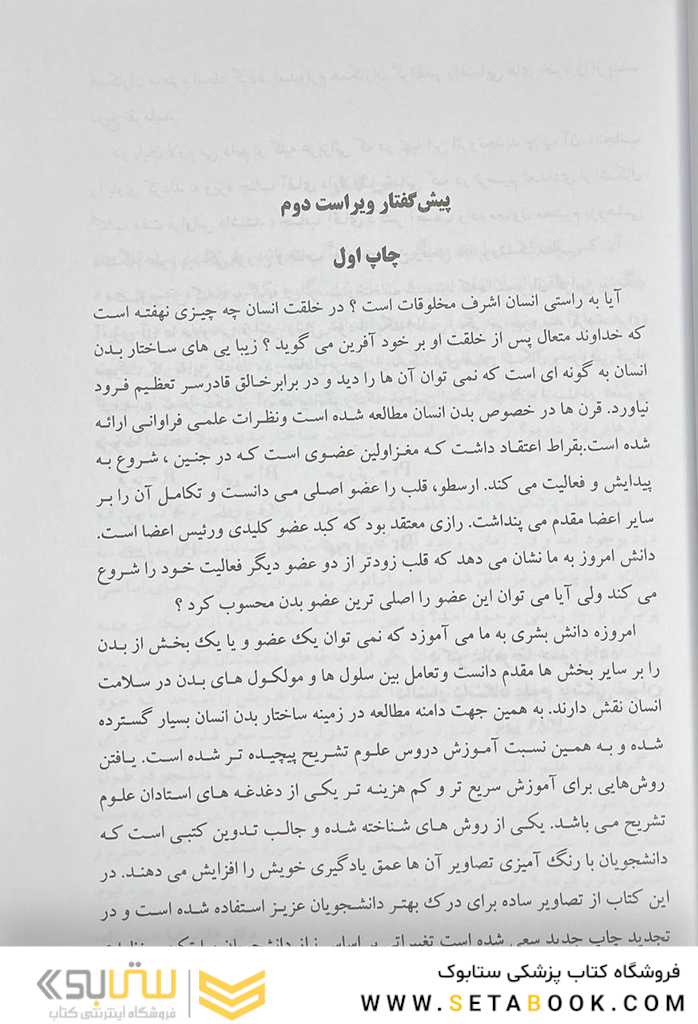 پیش گفتار ویراست دوم
چاپ اول
آیا به راستی انسان اشرف مخلوقات است ؟ در خلقت انسان چه چیزی نهفته است
که خداوند متعال پس از خلقت او بر خود آفرین می گوید ؟ زیبا یی های ساختار بدن
انسان به گونه ای است که نمی توان آن ها را دید و در برابرخالق قادرسر تعظیم فرود
نیاورد. قرن ها در خصوص بدن انسان مطالعه شده است ونظرات علمی فراوانی ارائه
شده است.بقراط اعتقاد داشت که مغزاولین عضوی است که در جنین ، شروع به
پیدایش و فعالیت می کند. ارسطو، قلب را عضو اصلی می دانست و تکامل آن را بر
سایر اعضا مقدم می پنداشت. رازی معتقد بود که کبد عضو کلیدی ورئیس اعضا است.
دانش امروز به ما نشان می دهد که قلب زودتر از دو عضو دیگر فعالیت خود را شروع
می کند ولی آیا می توان این عضو را اصلی ترین عضو بدن محسوب کرد ؟
امروزه دانش بشری به ما می آموزد که نمی توان یک عضو و یا یک بخش از بدن
را بر سایر بخش ها مقدم دانست وتعامل بین سلول ها و مولکول های بدن در سلامت
انسان نقش دارند. به همین جهت دامنه مطالعه در زمینه ساختار بدن انسان بسیار گسترده
شده و به همین نسبت آموزش دروس علوم تشریح پیچیده تر شده است. یافتن
روش‌هایی برای آموزش سریع تر و کم هزینه تر یکی از دغدغه های استادان علوم
تشریح می باشد. یکی از روش های شناخته شده و جالب تدوین کتبی است که
دانشجویان با رنگ آمیزی تصاویر آن ها عمق یادگیری خویش را افزایش می دهند. در
این کتاب از تصاویر ساده برای درک بهتر دانشجویان عزیز استفاده شده است و در
تجدید چاپ جدید سعی شده است تغییراتی بر اساس نیاز دانشجویان
فروشگاه کتاب پزشکی ستابوک
WWW.SETABOOK.COM
ستابوک
فروشگاه اینترنتی کتاب